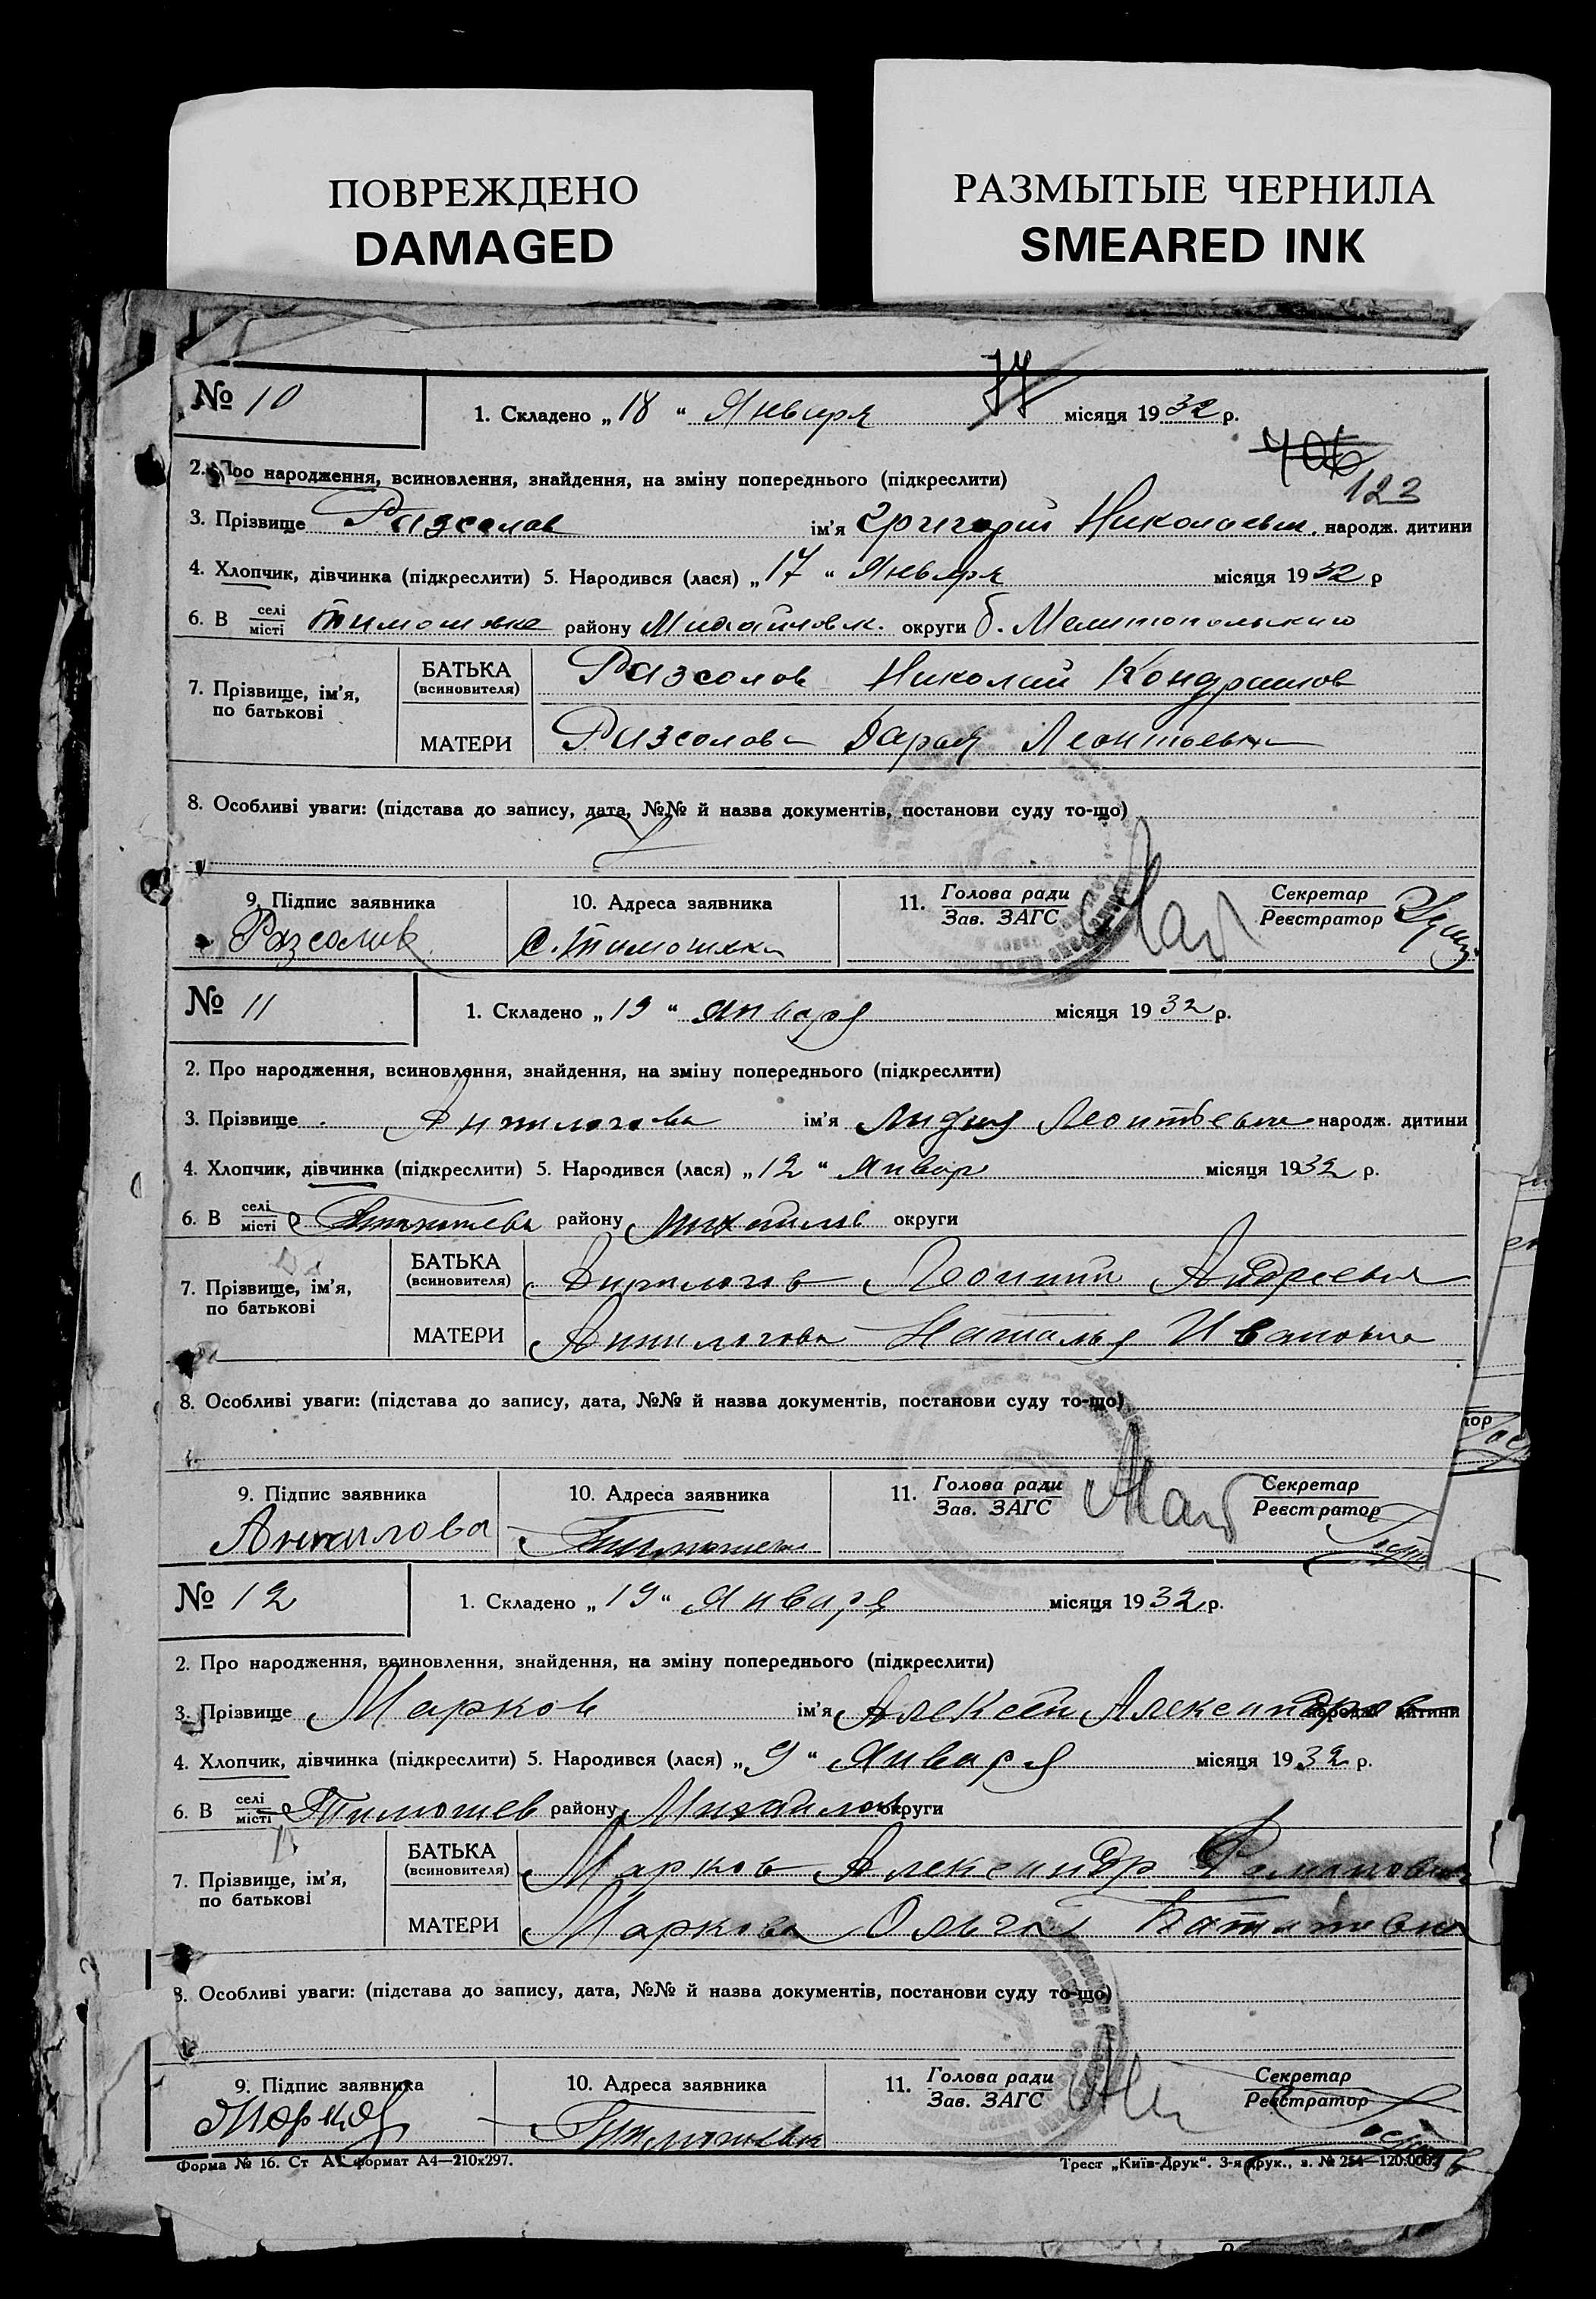 ПОВРЕЖДЕНО
DAMAGED
РАЗМЫТЫЕ ЧЕРНИЛА
SMEARED INK
77
№ 10
1. Складено „ 18 “ Января місяця 1932 р.
406
123
2. Про народження, всиновлення, знайдення, на зміну попереднього (підкреслити)
3. Прізвище Разсолов ім'я Григорий Николаевич. народж. дитини
4. Хлопчик, дівчинка (підкреслити) 5. Народився (лася) „ 17 “ Января місяця 1932 р
6. В селі місті Тимошевка району Михайловск. округи б. Мелитопольского
7. Прізвище, ім'я, по батькові
БАТЬКА (всиновителя) Разсолов Николай Кондратов
МАТЕРИ Разсолова Дарья Леонтьевна
8. Особливі уваги: (підстава до запису, дата, №№ й назва документів, постанови суду то-що)
9. Підпис заявника
10. Адреса заявника
11. Голова ради Зав. ЗАГС
Секретар Реєстратор
Разсолов
с. Тимошевка
№ 11
1. Складено „ 19 “ Января місяця 1932 р.
2. Про народження, всиновлення, знайдення, на зміну попереднього (підкреслити)
3. Прізвище Анпилогова ім'я Лидия Леонтьевна народж. дитини
4. Хлопчик, дівчинка (підкреслити) 5. Народився (лася) „ 12 “ Январ місяця 1932 р.
6. В селі місті району округи
7. Прізвище, ім'я, по батькові
БАТЬКА (всиновителя) Анпилогов Леонтий Андреевич
МАТЕРИ Анпилогова Наталья Ивановна
8. Особливі уваги: (підстава до запису, дата, №№ й назва документів, постанови суду то-що)
9. Підпис заявника
10. Адреса заявника
11. Голова ради Зав. ЗАГС
Секретар Реєстратор
№ 12
1. Складено „ 19 “ Января місяця 1932 р.
2. Про народження, всиновлення, знайдення, на зміну попереднього (підкреслити)
3. Прізвище Марков ім'я Алексей Александров народж. дитини
4. Хлопчик, дівчинка (підкреслити) 5. Народився (лася) „ 9 “ Января місяця 1932 р.
6. В селі місті Тимошев району Михайлов округи
7. Прізвище, ім'я, по батькові
БАТЬКА (всиновителя) Марков Александр
МАТЕРИ Маркова Ольга
8. Особливі уваги: (підстава до запису, дата, №№ й назва документів, постанови суду то-що)
9. Підпис заявника
10. Адреса заявника
11. Голова ради Зав. ЗАГС
Секретар Реєстратор
Форма № 16. Ст А4 формат А4—210х297.
Трест „Київ-Друк“. 3-я друк., з. № 254—120.000